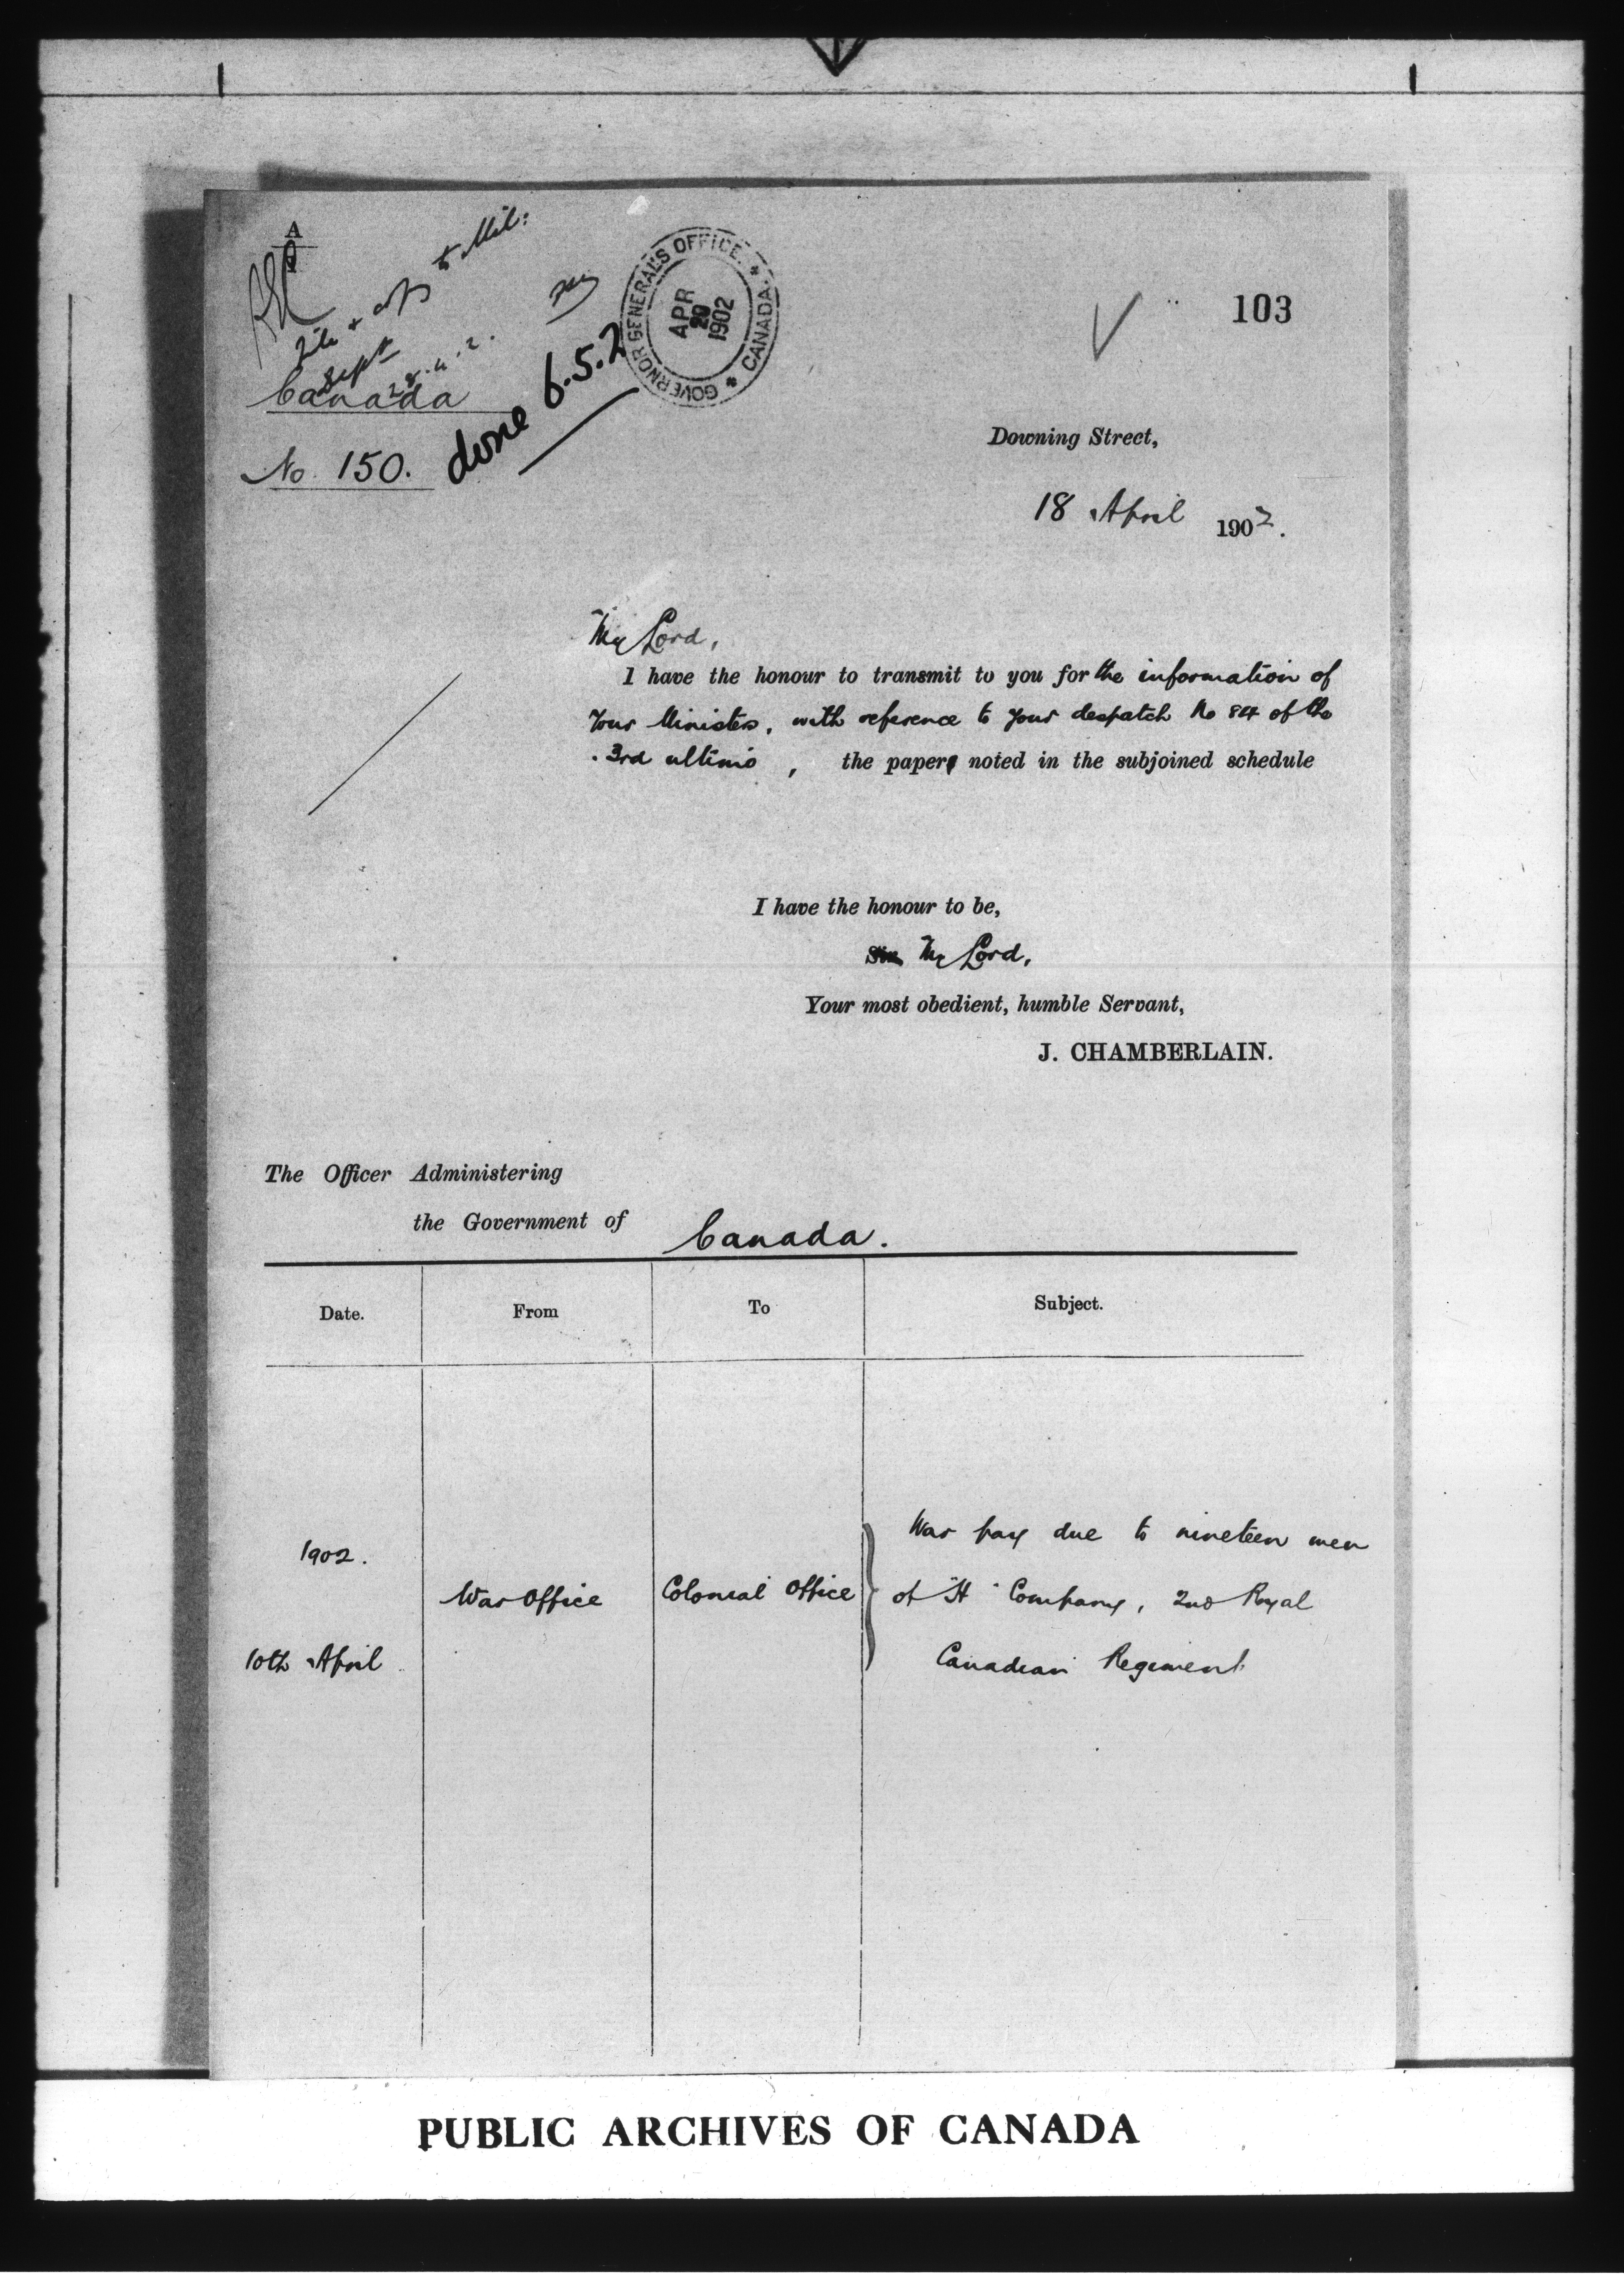 A
to Mil:
Canada
No. 150.
done 6.5.2
28.4.2.
GOVERNOR GENERAL'S OFFICE. * CANADA. *
APR
29
1902
103
Downing Street,
18 April 1902.
My Lord,
I have the honour to transmit to you for the information of
Your Ministers, with reference to your despatch No 84 of the
3rd ultimo, the paper noted in the subjoined schedule
I have the honour to be,
My Lord,
Your most obedient, humble Servant,
J. CHAMBERLAIN.
The Officer Administering
the Government of Canada.
Date. From To Subject.
1902.
10th April
War Office
Colonial Office
War pay due to nineteen men
of "H" Company, 2nd Royal
Canadian Regiment
PUBLIC ARCHIVES OF CANADA